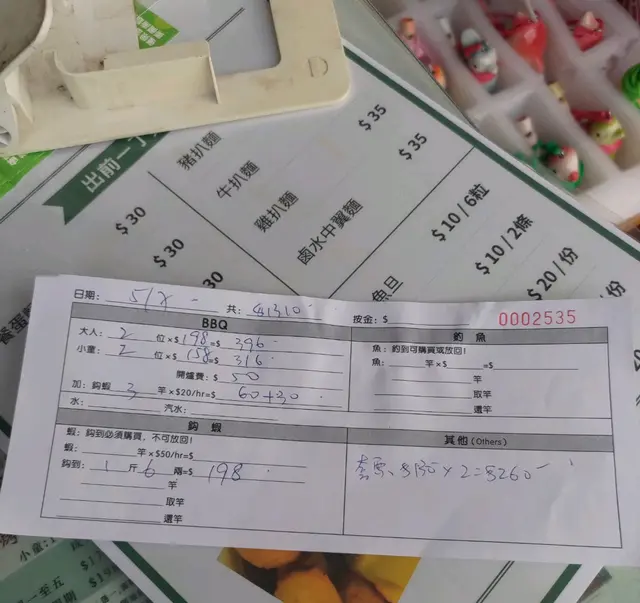 出前一丁
豬扒麵 $35
牛扒麵 $35
雞扒麵
鹵水中翼麵
$30
$30
30
$10/6粒
$10/2條
$20/份
魚旦
日期: 共: $1310 按金: $ 0002535
BBQ
大人: 2 位×$198=$ 396
小童: 2 位×$158=$ 316
開爐費: $ 50
加: 鈎蝦 3 竿×$20/hr=$ 60+30
水: 汽水:
釣魚
魚: 釣到可購買或放回!
魚: 竿×$ =$
竿
取竿
還竿
鈎蝦
蝦: 鈎到必須購買, 不可放回!
蝦: 竿×$50/hr=$
鈎到: 1 斤 6 兩=$ 198
竿
取竿
還竿
其他 (Others)
$130×2=$260
小童:
一至五